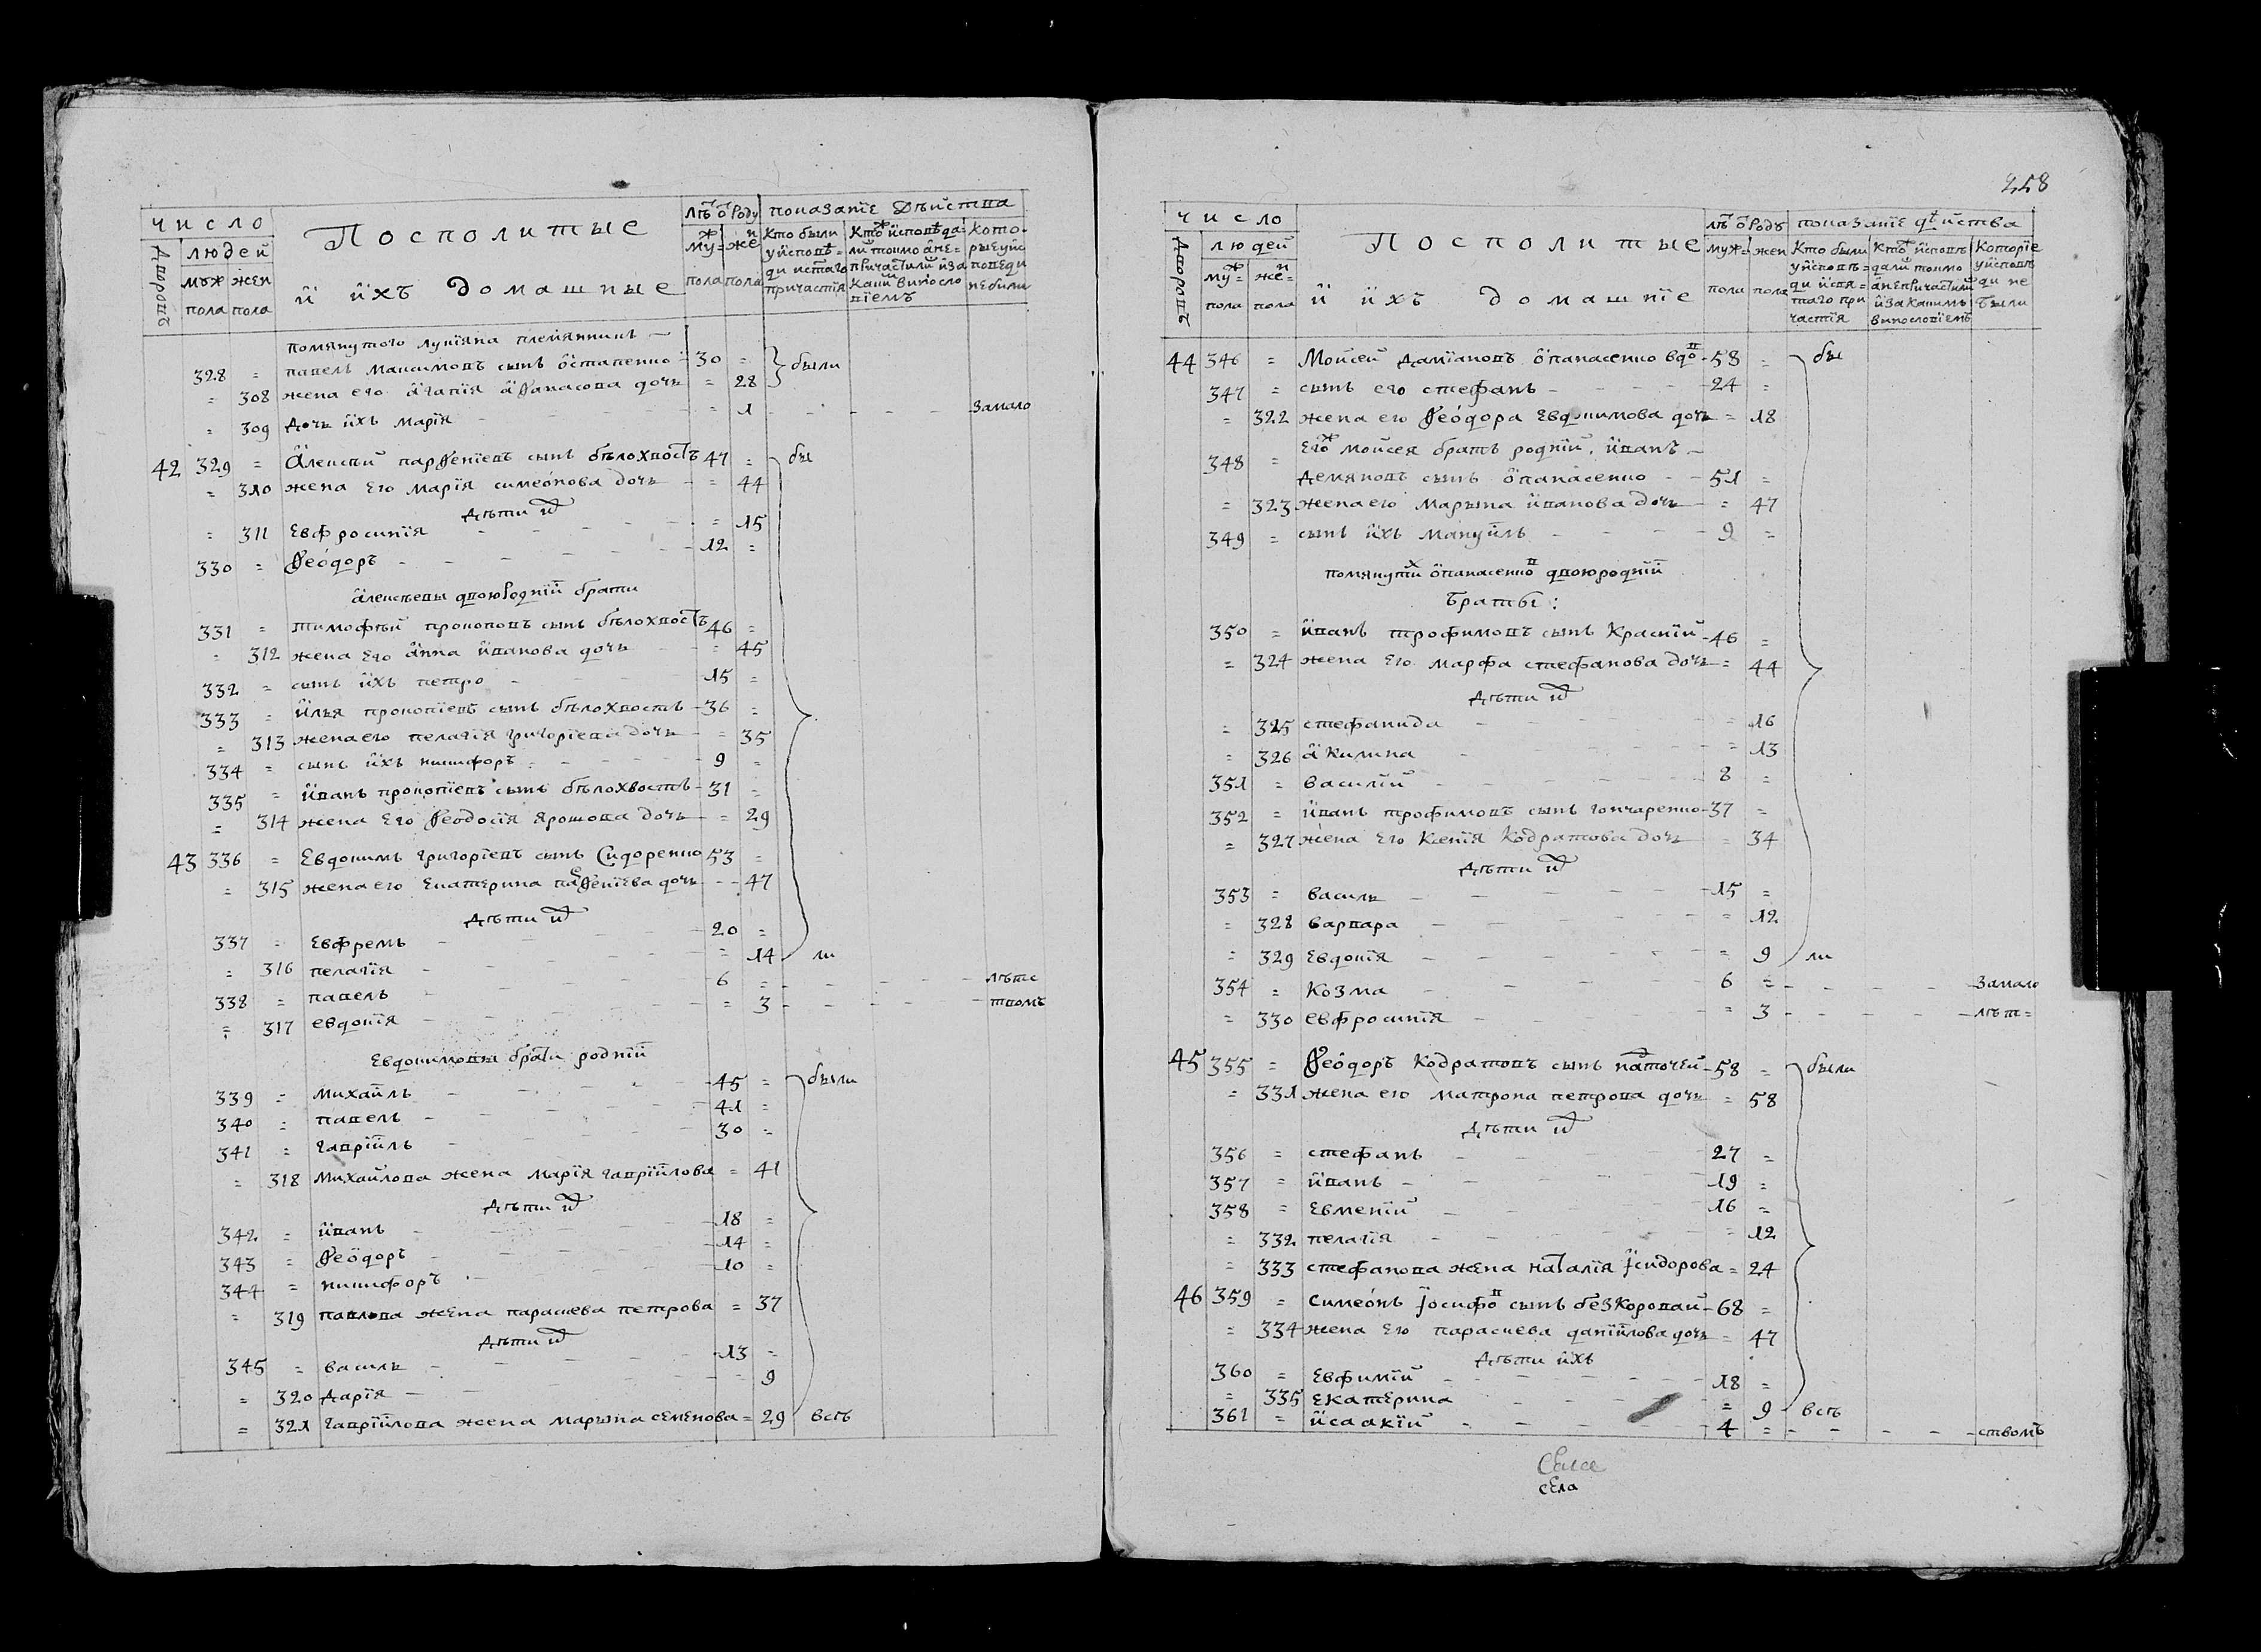 число
Посполитые
лѣт ѿ роду
показанїе дѣйства
дворовъ
людей
муж пола
жен пола
и ихъ домашные
муж пола
жен пола
кто были у исповѣди и стаго причастїя
Кто исповѣдали токмо а не причастили и за какимъ виносло вїемъ
которые у исповеди не были
помянутого лукїяна племянникъ
328 = павелъ максимовъ сынъ остапенко 30 = были
= 308 жена его агапїя афанасова дочь = 28
= 309 дочь ихъ марїя = 1 замало
42 329 = алексѣй парѳенїевъ сынъ бѣлохвостъ 47 = бы
= 310 жена его марїя симеонова дочь = 44
дѣти их
= 311 Евфросинїя = 15
330 = Ѳеодоръ 12 =
алексѣевы двоюродний брати
331 = тимофѣй прокоповъ сынъ бѣлохвостъ 46 =
= 312 жена его анна иванова дочь = 45
332 = сынъ ихъ петро 15 =
333 = илья прокопїевъ сынъ бѣлохвостъ 36 =
= 313 жена его пелагїя григорїева дочь = 35
334 = сынъ ихъ никифоръ 9 =
335 = иванъ прокопїевъ сынъ бѣлохвостъ 31 =
= 314 жена его Ѳеодосїя ярошова дочь = 29
43 336 = Евдокимъ григорїевъ сынъ Сидоренко 53 =
= 315 жена его Екатерина парѳенїева дочь - 47
дѣти их
337 = Евфремъ 20 =
= 316 пелагїя = 14 ли
338 = павелъ 6 = лѣтс
= 317 евдокїя = 3 твомъ
Евдокимовы брати родний
339 = михаилъ 45 = были
340 = павелъ 41 =
341 = гаврїилъ 30 =
= 318 михаилова жена марїя гаврїилова = 41
дѣти их
342 = иванъ 18 =
343 = Ѳеодоръ 14 =
344 = никифоръ 10 =
= 319 павлова жена параскева петрова = 37
дѣти их
345 = василь 13 =
= 320 дарїя = 9
= 321 гаврїилова жена марына семенова = 29 всѣ
258
число
Посполитые
лѣт ѿ роду
показанїе дѣйства
дворовъ
людей
муж пола
жен пола
и ихъ домашнїе
муж пола
жен пола
Кто были у исповѣди и святаго при частїя
Кто исповѣдали токмо а не причастили и за какимъ винословїемъ
Которїе у исповѣди не были
44 346 = Мойсей дамїановъ опанасенко вдов 58 = бы
347 = сынъ его стефанъ 24 =
= 322 жена его Ѳеодора Евдокимова дочь = 18
348 = Его ж мойсея братъ роднїй иванъ
демяновъ сынъ опанасенко 51 =
= 323 жена его марына иванова дочь = 47
349 = сынъ ихъ мануилъ 9 =
помянутих опанасенков двоюродний
браты:
350 = иванъ трофимовъ сынъ Краснїй 46 =
= 324 жена его марфа стефанова дочь = 44
дѣти их
= 325 стефанида = 16
= 326 акилина = 13
351 = василїй 8 =
352 = иванъ трофимовъ сынъ гончаренко 37 =
= 327 жена его Ксенїя Кодратова дочь = 34
дѣти их
353 = василь 15 =
= 328 варвара = 12
= 329 евдокїя = 9 ли
354 = козма 6 = замало
= 330 евфросинїя = 3 лѣт=
45 355 = Ѳеодоръ Кодратовъ сынъ 58 = были
= 331 жена его матрона петрова дочь = 58
дѣти их
356 = стефанъ 27 =
357 = иванъ 19 =
358 = Евменїй 16 =
= 332 пелагїя = 12
= 333 стефанова жена наталїя Їсидорова = 24
46 359 = Симеонъ Їосифов сынъ безкоровай 68 =
= 334 жена его параскева данїилова дочь = 47
дѣти ихъ
360 = Евфимїй 18 =
= 335 Екатерина = 9 всѣ
361 = исаакїй 4 = ствомъ
села